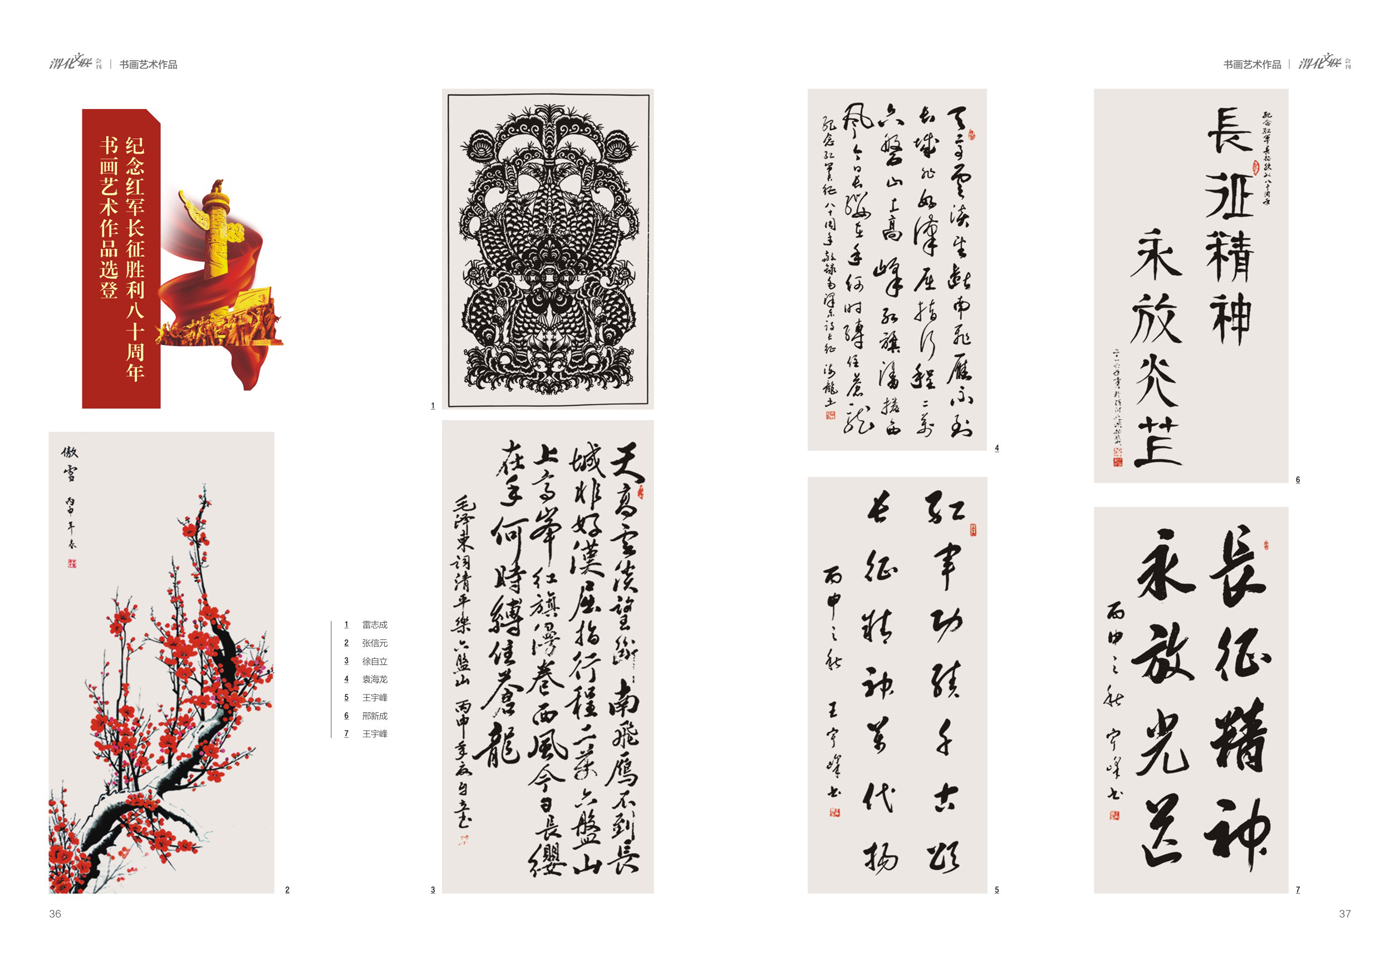 渭化文联 会刊 | 书画艺术作品
纪念红军长征胜利八十周年
书画艺术作品选登
傲雪
丙申年春
2
1 雷志成
2 张信元
3 徐自立
4 袁海龙
5 王宇峰
6 邢新成
7 王宇峰
1
天高云淡望断南飞雁不到長
城非好漢屈指行程二万六盤山
上高峯红旗漫卷西風今日長纓
在手何時縛住蒼龍
毛泽東词清平樂六盤山 丙申年夏自立书
3
36
书画艺术作品 | 渭化文联 会刊
天高云淡望断南飛雁不到
长城非好漢屈指行程二万
六盤山上高峰红旗漫捲西
風今日长缨在手何时缚住苍龙
4
红军功績千古颂
长征精神万代扬
丙申之秋 王宇峰书
5
纪念红军長征胜利八十周年
長征精神
永放光芒
6
長征精神
永放光芒
丙申之秋 宇峰书
7
37